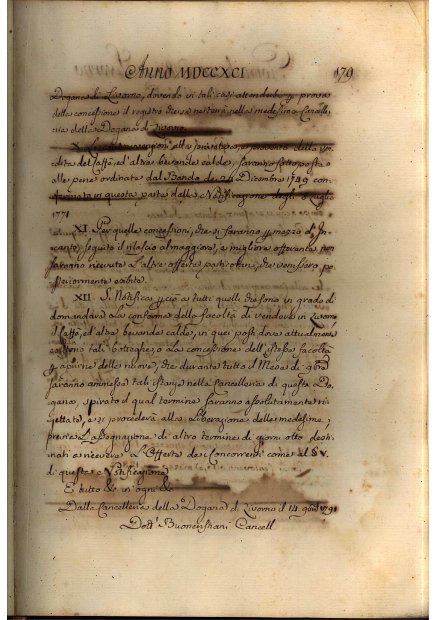 Anno MDCCXCI 179
Dogana di Livorno, dovendo in tali casi attendersi p. prova
della concessione il registro che ne resterà nella medesima Cancelle-
ria della Dogana di Livorno.
X. Le trasgressioni alla privativa, e proventa della ven-
dita del Caffè, ed altre bevande calde, saranno sottoposte
alle pene ordinate dal Bando de 24 Dicembre 1749 con-
fermata in questa parte dalla Notificazione degli 8 Luglio
1771
XI. Per quelle concessioni, che si faranno p. mezzo d'In-
canto, seguito il rilascio al maggiore, e migliore offerente non
saranno ricevute l'altre offerte, che venissero po-
steriormente esibite.
XII. Si Notifica p. ciò a tutti quelli che sono in grado di
domandare la conferma della facoltà di vendere in Livorno
il Caffè, ed altre bevande calde, in quei posti dove attualmente
esistono tali botteghe, o la concessione dell'istessa facoltà
p. aprirne delle nuove, che durante tutto il Mese di 9bre
saranno ammesse tali istanze nella Cancelleria di questa Do-
gana, spirato il qual termine saranno assolutamente ri-
gettate, e si procederà alla Liberazione delle medesime,
previa l'assegnazione di altro termine di giorni otto desti-
nati a ricevere l'Offerte dei Concorrenti come al § V.
di questa Notificazione
E tutto &c in ogni &c
Dalla Cancelleria della Dogana di Livorno il 14 9bre 1791
Dott. Cancell.